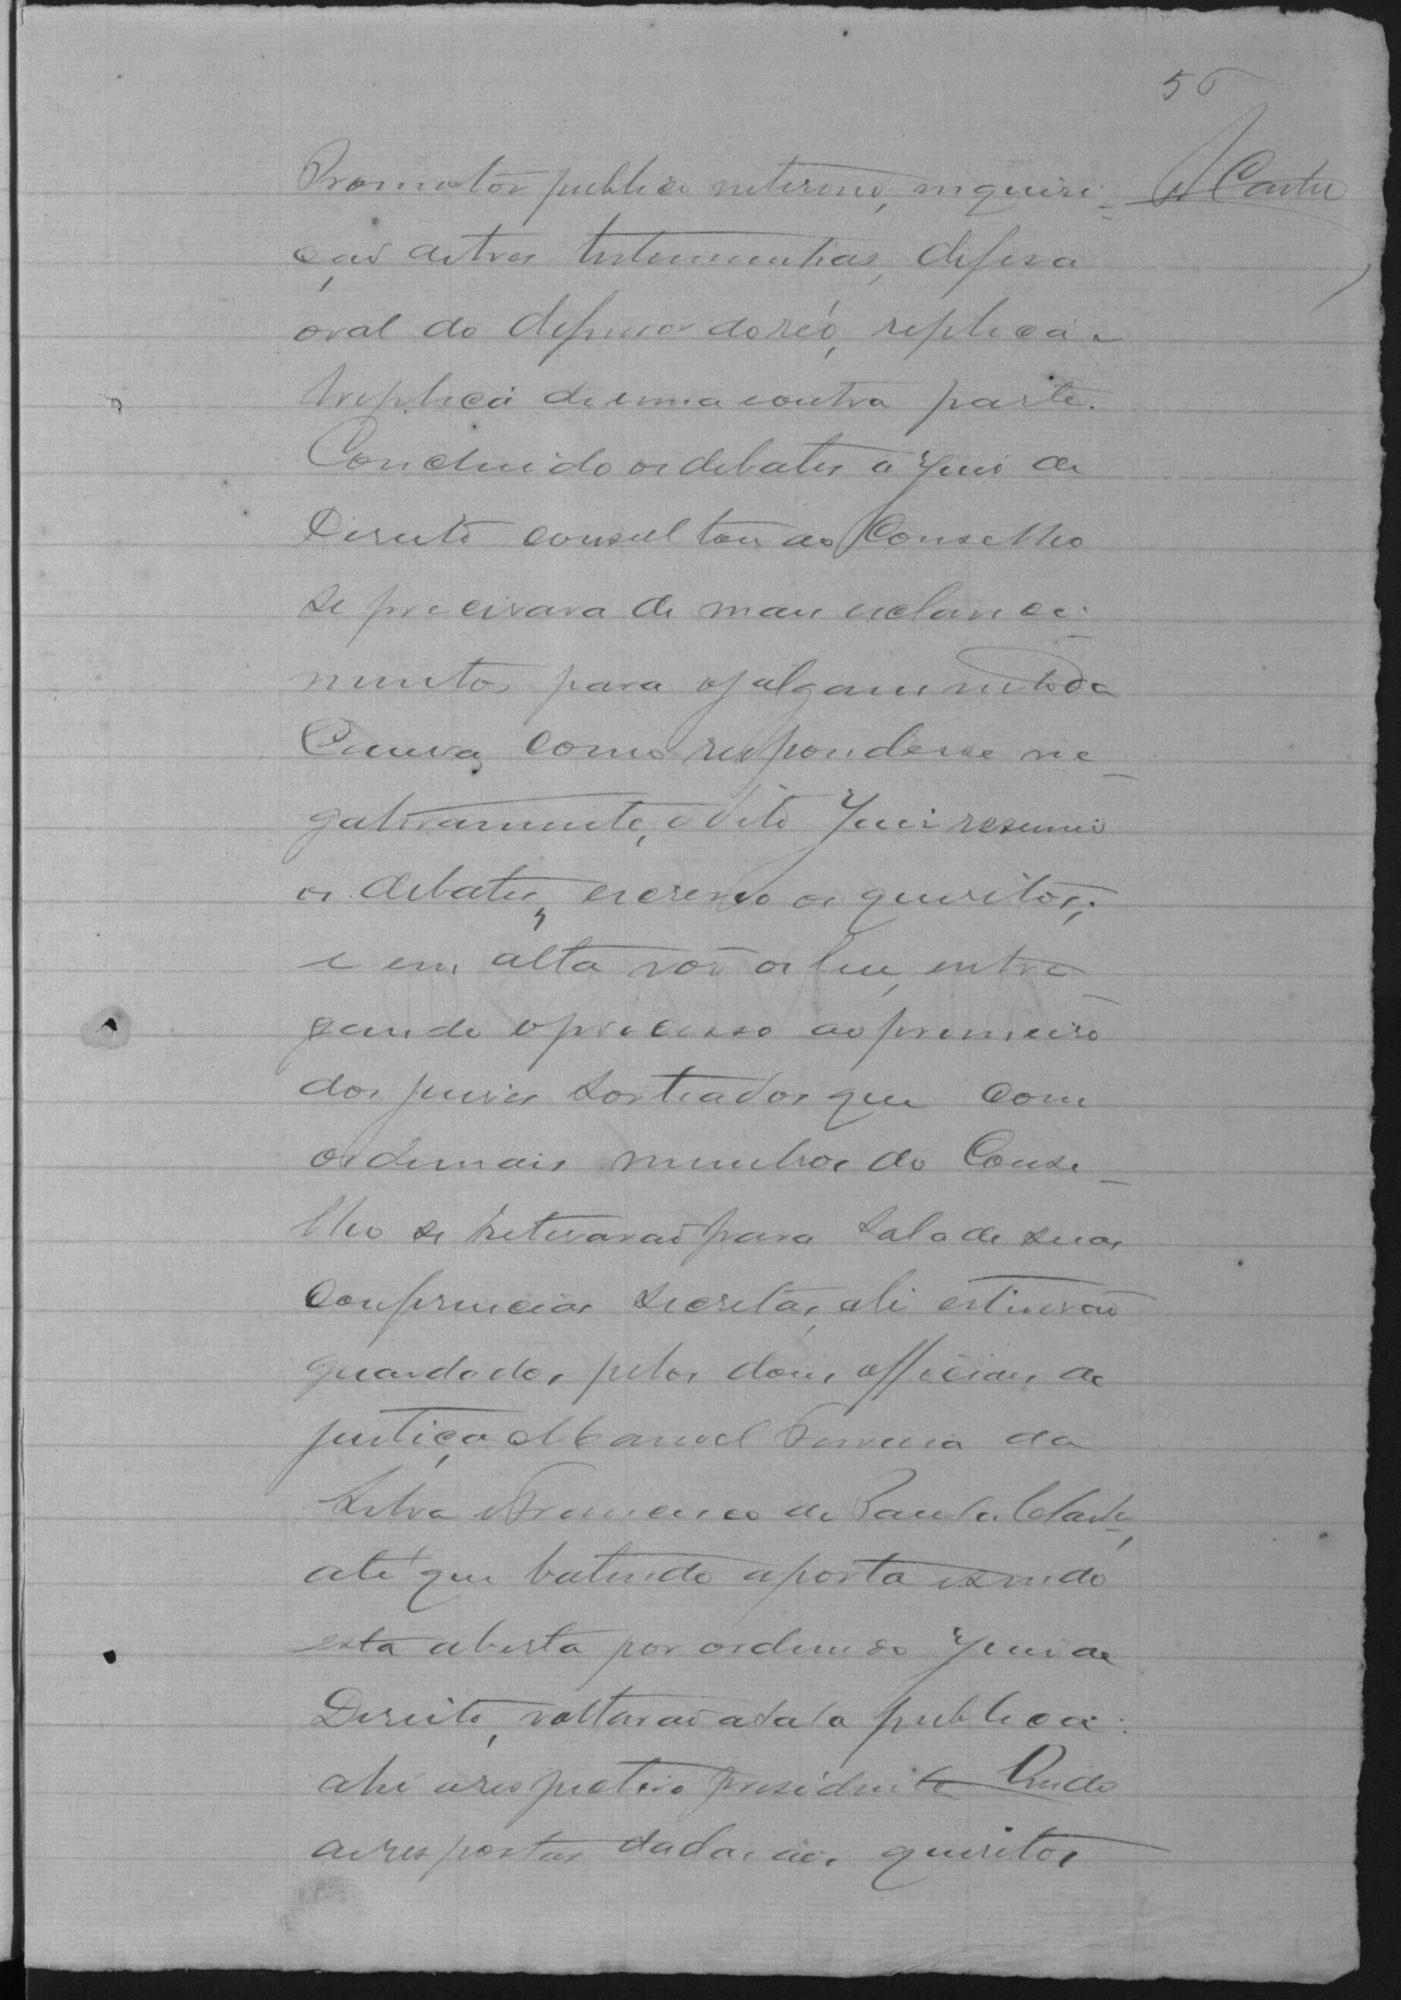 56
Promotor publico interino, inquiri-
ção de tres testemunhas, defesa
oral do defensor do réo, replica e
treplica de uma e outra parte.
Concluido os debates o Juis de
Direito consultou ao Conselho
se precisava de mais esclareci-
mentos para o julgamento da
Causa, como respondesse ne-
gativamente, o dito Juis resumio
os debates, escreveo os quesitos,
e em alta vós os leu, entre-
gando o processo ao primeiro
dos juises sorteados que com
os demais membros do Conse-
lho se retirarão para sala de suas
conferencias secretas, ali estiverão
guardados pelos dous officiaes de
justiça Manoel Ferreira da
Silva e Francisco de Paula
até que batendo a porta e sendo
esta aberta por ordem do Juis de
Direito, voltarão a sala publica:
ahi o respectivo presidente lendo
as respostas dadas aos quesitos